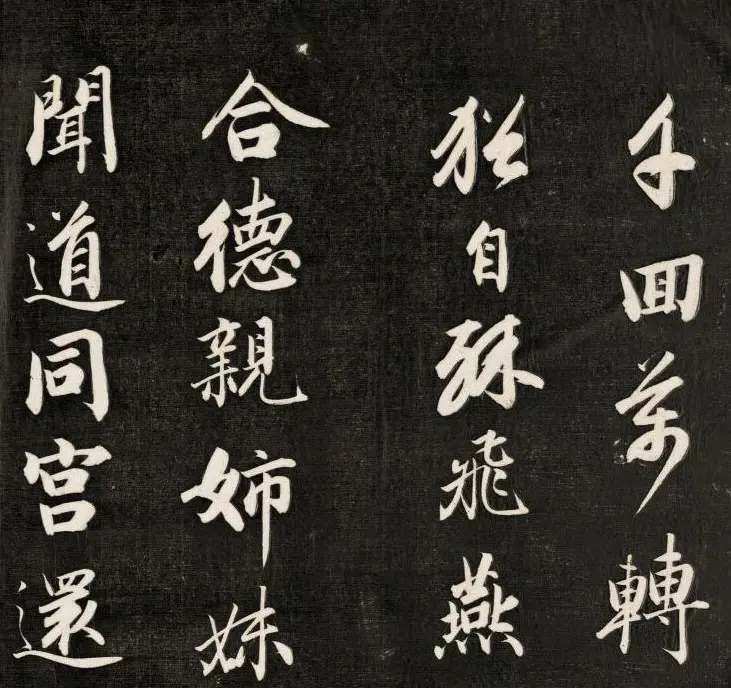 千回萬轉
猶自疎飛燕
合德親姊妹
聞道同宮還